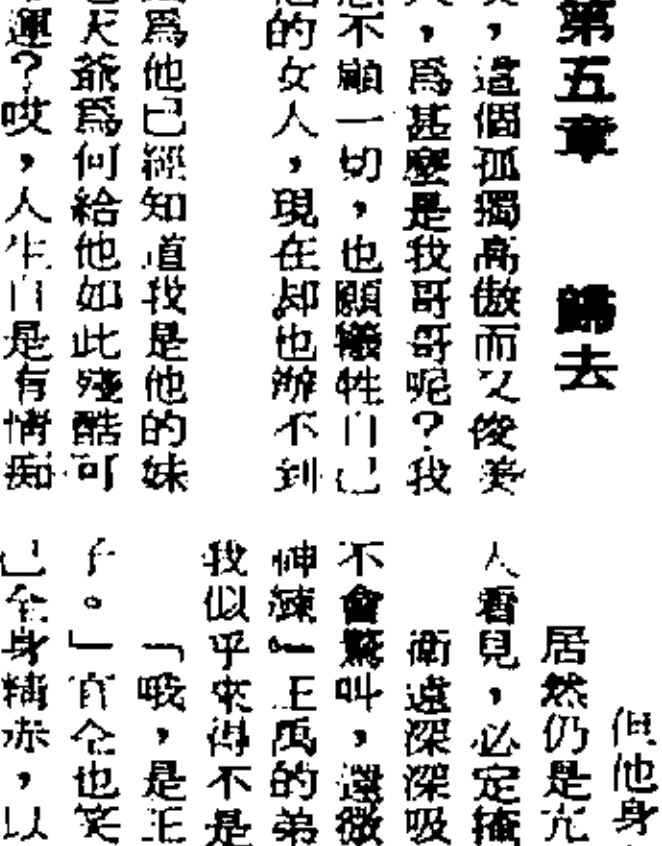 第五章 歸去
，這個孤獨高傲而又俊美
，爲甚麼是我哥哥呢？我
不顧一切，也願犧牲自己
的女人，現在却也辦不到
爲他已經知道我是他的妹
天爺爲何給他如此殘酷可
運？哎，人生自是有情痴
但他身
居然仍是尤
人看見，必定掩
衛遠深深吸
不會驚叫，還微
神鍊」王禹的弟
我似乎來得不是
「哦，是王
子。」宮仝也笑
已全身精赤，以